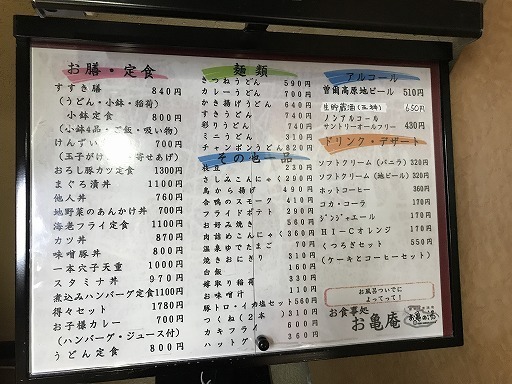 お膳・定食
すすき膳 840円
(うどん・小鉢・稲荷)
小鉢定食 800円
(小鉢4品・ご飯・吸い物)
けんずい 700円
(玉子がけ 寄せあげ)
おろし豚カツ定食 1300円
まぐろ漬丼 1100円
他人丼 760円
地野菜のあんかけ丼 700円
海老フライ定食 1100円
カツ丼 870円
味噌豚丼 800円
一本穴子天重 1000円
スタミナ丼 970円
煮込みハンバーグ定食1100円
得々セット 1780円
お子様カレー 700円
(ハンバーグ・ジュース付)
うどん定食 800円
麺類
きつねうどん 590円
カレーうどん 700円
かき揚げうどん 640円
すきうどん 740円
彩りうどん 740円
ミニうどん 310円
チャンポンうどん 820円
その他一品
枝豆 230円
さしみこんにゃく 290円
鳥から揚げ 490円
合鴨のスモーク 410円
フライドポテト 290円
お好み焼き 560円
肉詰めこんにゃく 360円
温泉ゆでたまご 70円
焼きおにぎり 310円
白飯 160円
嫁取り稲荷 330円
お味噌汁 110円
豚トロ・イカ塩セット 560円
つくね(2本) 310円
カキフライ 600円
ハットグ 360円
アルコール
曽爾高原地ビール 510円
生貯蔵酒 650円
ノンアルコール
サントリーオールフリー 430円
ドリンク・デザート
ソフトクリーム(バニラ) 320円
ソフトクリーム(地ビール) 320円
ホットコーヒー 360円
コカ・コーラ 170円
ジンジャエール 170円
HI-Cオレンジ 170円
くつろぎセット 550円
(ケーキとコーヒーセット)
お風呂ついでに
よってって!
お食事処
お亀庵
お亀の湯